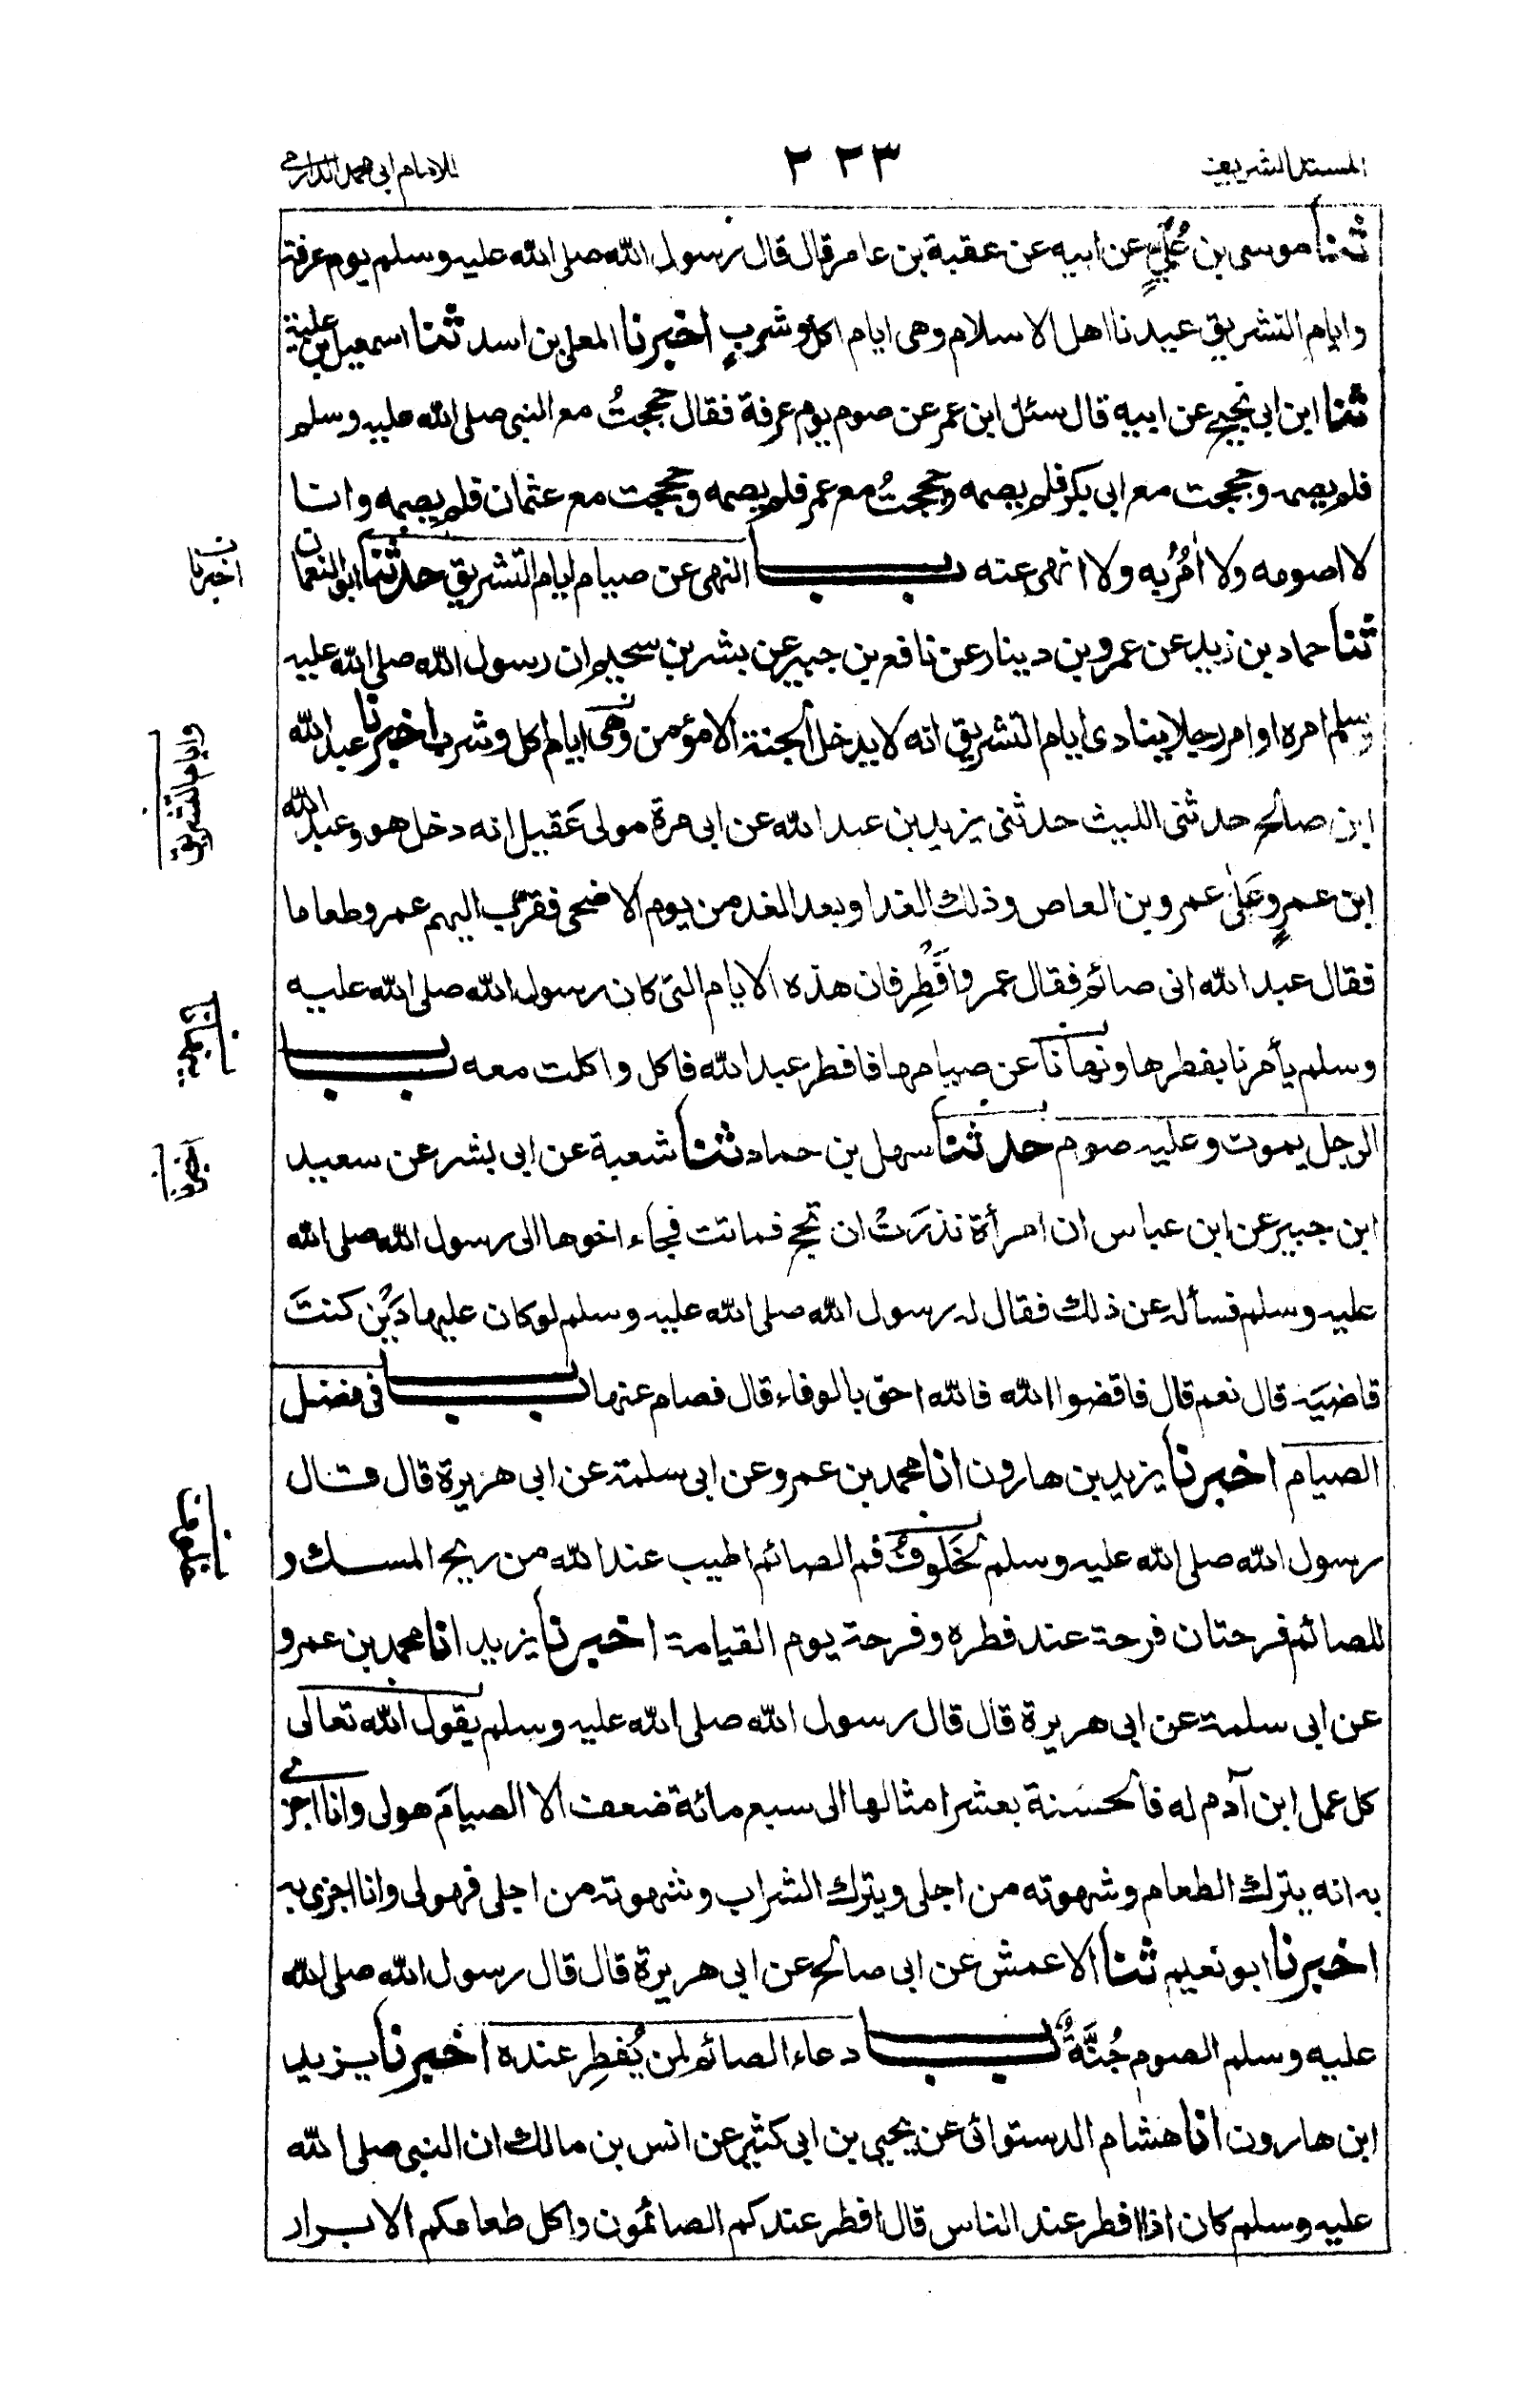 المسند الشريف
٢٢٣
للامام ابى محمد الدارمى
ثنا موسى بن عُلَىٍّ عن ابيه عن عقبة بن عامر قال قال رسول الله صلى الله عليه وسلم يوم عرفة
وايام التشريق عيدنا اهل الاسلام وهى ايام اكل وشربٍ اخبرنا المعلى بن اسد ثنا اسمعيل بن علية
ثنا ابن ابى نجيح عن ابيه قال سئل ابن عمر عن صوم يوم عرفة فقال حججتُ مع النبى صلى الله عليه وسلم
فلم يصمه وحججت مع ابى بكر فلم يصمه وحججتُ مع عمر فلم يصمه وحججت مع عثمان فلم يصمه وانا
لا اصومه ولا اٰمُرُ به ولا انهى عنه باب النهى عن صيام ايام التشريق حدثنا ابو النعمان
ثنا حماد بن زيد عن عمرو بن دينار عن نافع بن جبير عن بشر بن سحيم ان رسول الله صلى الله عليه
وسلم امره او امر رجلا ينادى ايام التشريق انه لا يدخل الجنة الا مؤمن وهى ايام اكل وشرب اخبرنا عبد الله
ابن صالح حدثنى الليث حدثنى يزيد بن عبد الله عن ابى مرة مولى عَقيل انه دخل هو وعبد الله
ابن عمرٍو عَلٰى عمرو بن العاص وذلك الغد او بعد الغد من يوم الاضحى فقرّب اليهم عمرو طعاما
فقال عبد الله انى صائم فقال عمرو اَفْطِر فان هذه الايام التى كان رسول الله صلى الله عليه
وسلم يأمرنا بفطرها ونهانا عن صيامها فافطر عبد الله فاكل واكلت معه باب
الرجل يموت وعليه صوم حدثنا سهل بن حماد ثنا شعبة عن ابى بشر عن سعيد
ابن جبير عن ابن عباس ان امرأة نذرَتْ ان تحج فماتت فجاء اخوها الى رسول الله صلى الله
عليه وسلم فسأله عن ذلك فقال له رسول الله صلى الله عليه وسلم لو كان عليها دَيْن كنتَ
قاضيَه قال نعم قال فاقضوا الله فالله احق بالوفاء قال فصام عنها باب فى فضل
الصيام اخبرنا يزيد بن هارون انا محمد بن عمرو عن ابى سلمة عن ابى هريرة قال قال
رسول الله صلى الله عليه وسلم لخَلُوفُ فم الصائم اطيب عند الله من ريح المسك و
للصائم فرحتان فرحة عند فطره وفرحة يوم القيامة اخبرنا يزيد انا محمد بن عمرو
عن ابى سلمة عن ابى هريرة قال قال رسول الله صلى الله عليه وسلم يقول الله تعالى
كل عمل ابن آدم له فالحسَنة بعشر امثالها الى سبع مائة ضعف الا الصيامَ هو لى وانا اجزى
به انه يترك الطعام وشهوته من اجلى ويترك الشراب وشهوته من اجلى فهو لى وانا اجزى به
اخبرنا ابو نعيم ثنا الاعمش عن ابى صالح عن ابى هريرة قال قال رسول الله صلى الله
عليه وسلم الصوم جُنَّةٌ باب دعاء الصائم لمن يُفطِر عنده اخبرنا يزيد
ابن هارون انا هشام الدستوائى عن يحيى بن ابى كثير عن انس بن مالك ان النبى صلى الله
عليه وسلم كان اذا افطر عند الناس قال افطر عندكم الصائمون واكل طعامكم الابرار
اخبرنا
وايام التشريق